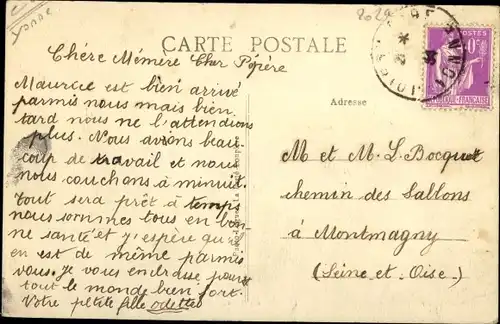 Yonne
CARTE POSTALE
Chére Mémére Cher Pépére
Maurcie est bien arrivé
parmis nous mais bien
tard nous ne l'attendions
plus. Nous avions beau-
coup de travail et nous
nous couchons à minuit.
tout sera prêt à temps
nous sommes tous en bon
ne santé et j'espère qu'il
en est de même parmis
vous. Je vous embrasse pour
tout le monde bien fort.
Votre petite fille odette
Adresse
M et M. L. Bocquet
chemin des Sablons
à Montmagny
(Seine-et-Oise)
POSTES